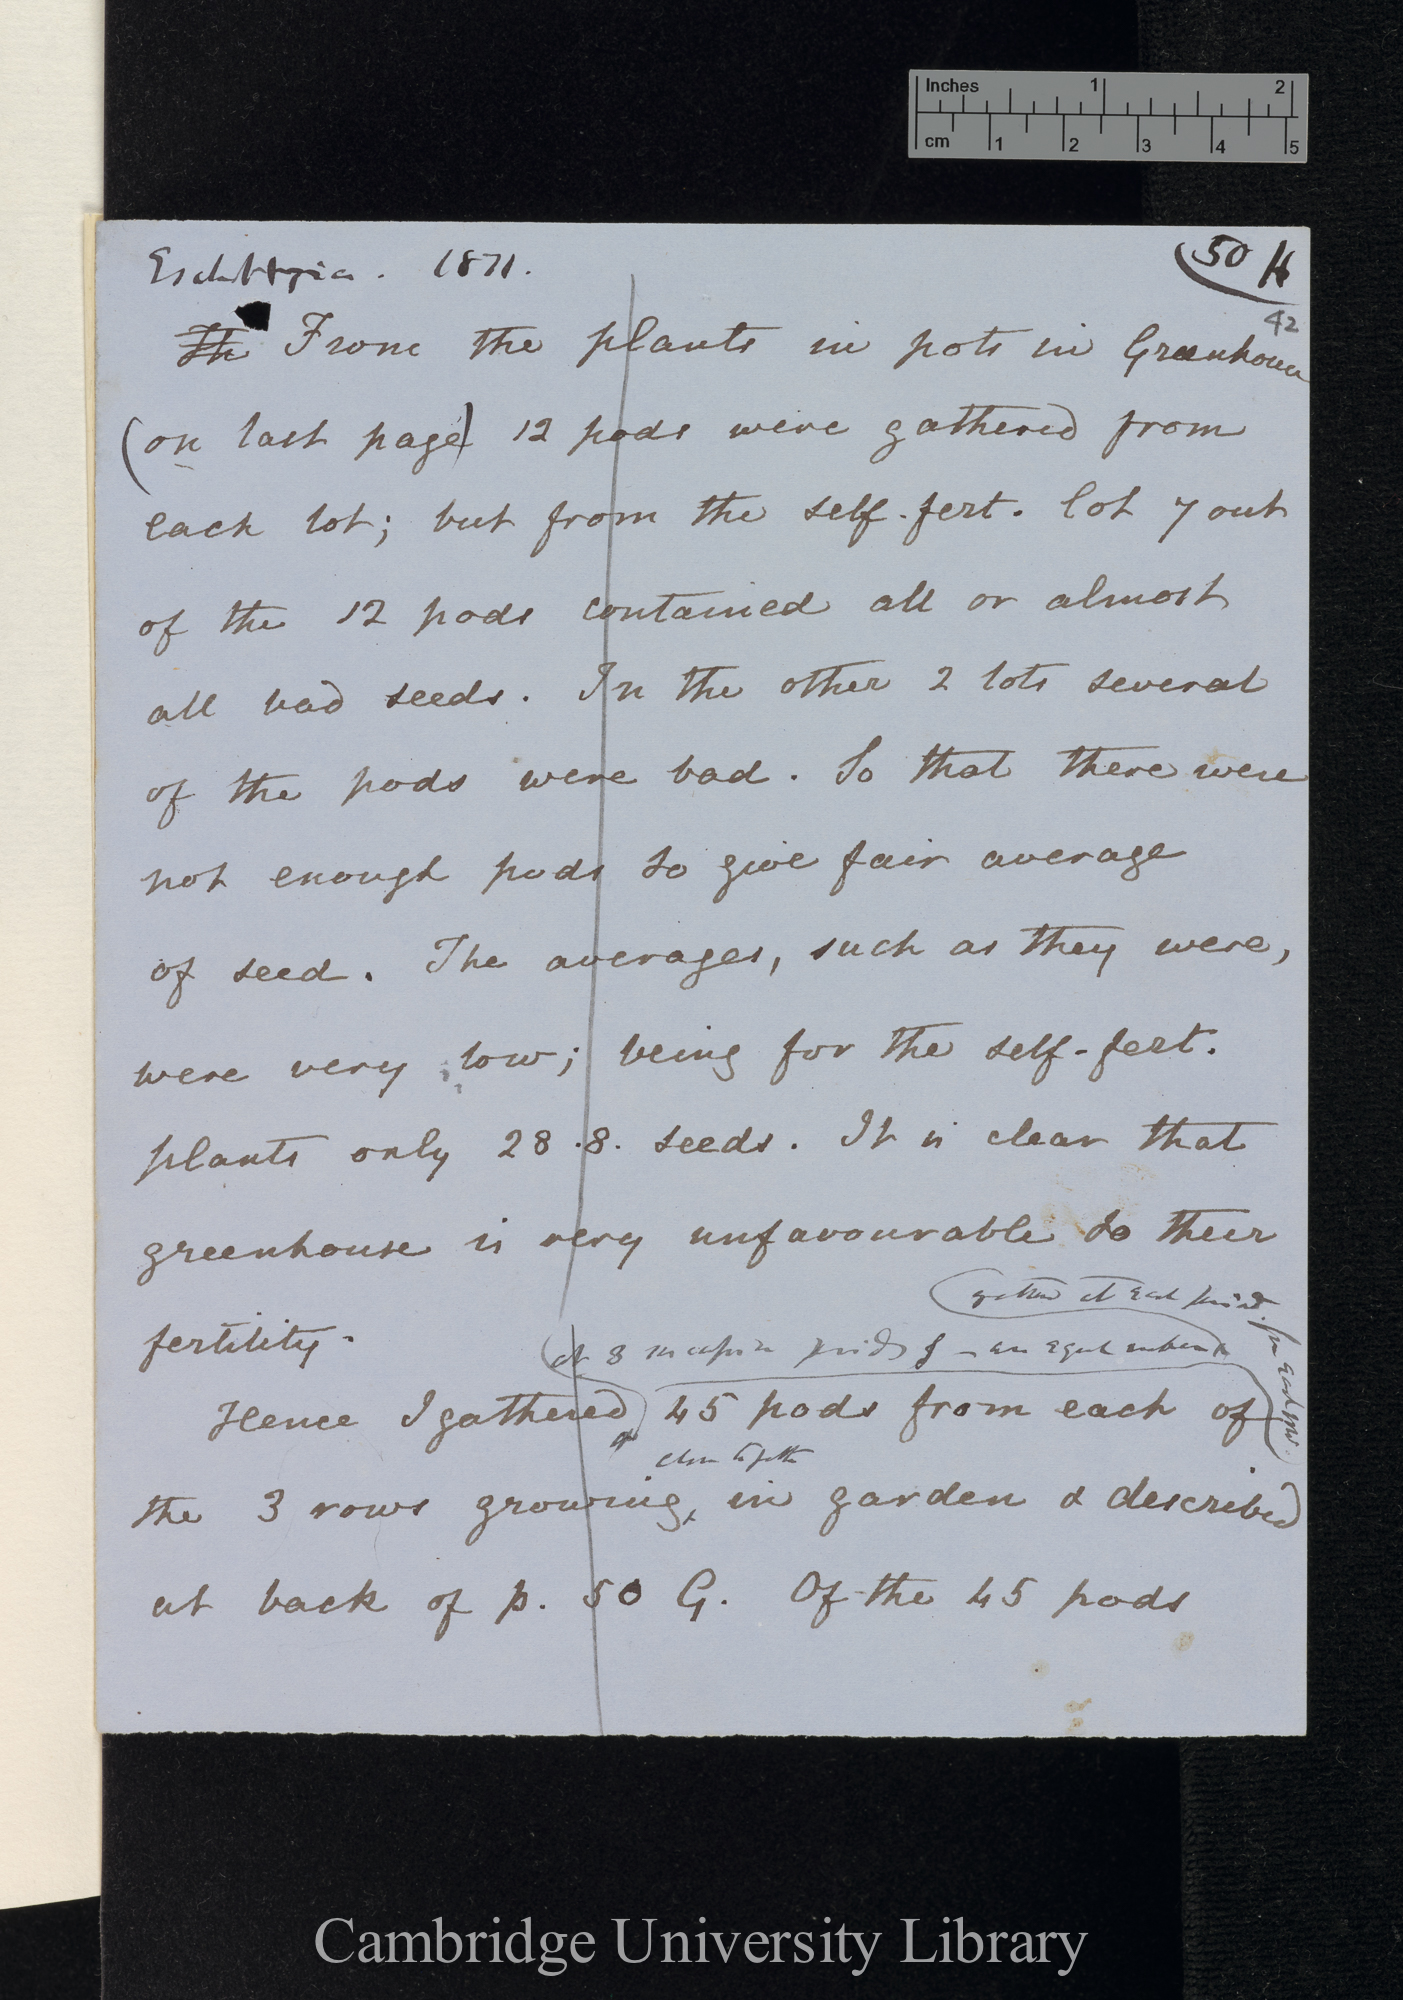 Inches 1 2
cm 1 2 3 4 5
Eschscholtzia. 1871.
50 H
42
The From the plants in pots in Greenhouse
(on last page) 12 pods were gathered from
each lot; but from the self-fert. lot 7 out
of the 12 pods contained all or almost
all bad seeds. In the other 2 lots several
of the pods were bad. So that there were
not enough pods to give fair average
of seed. The averages, such as they were,
were very low; being for the self-fert.
plants only 28.8. seeds. It is clear that
greenhouse is very unfavourable to their
fertility.
at 8 periods an equal number
Hence I gathered 45 pods from each of
close together
the 3 rows growing in garden & described
at back of p. 50 G. Of the 45 pods
Cambridge University Library